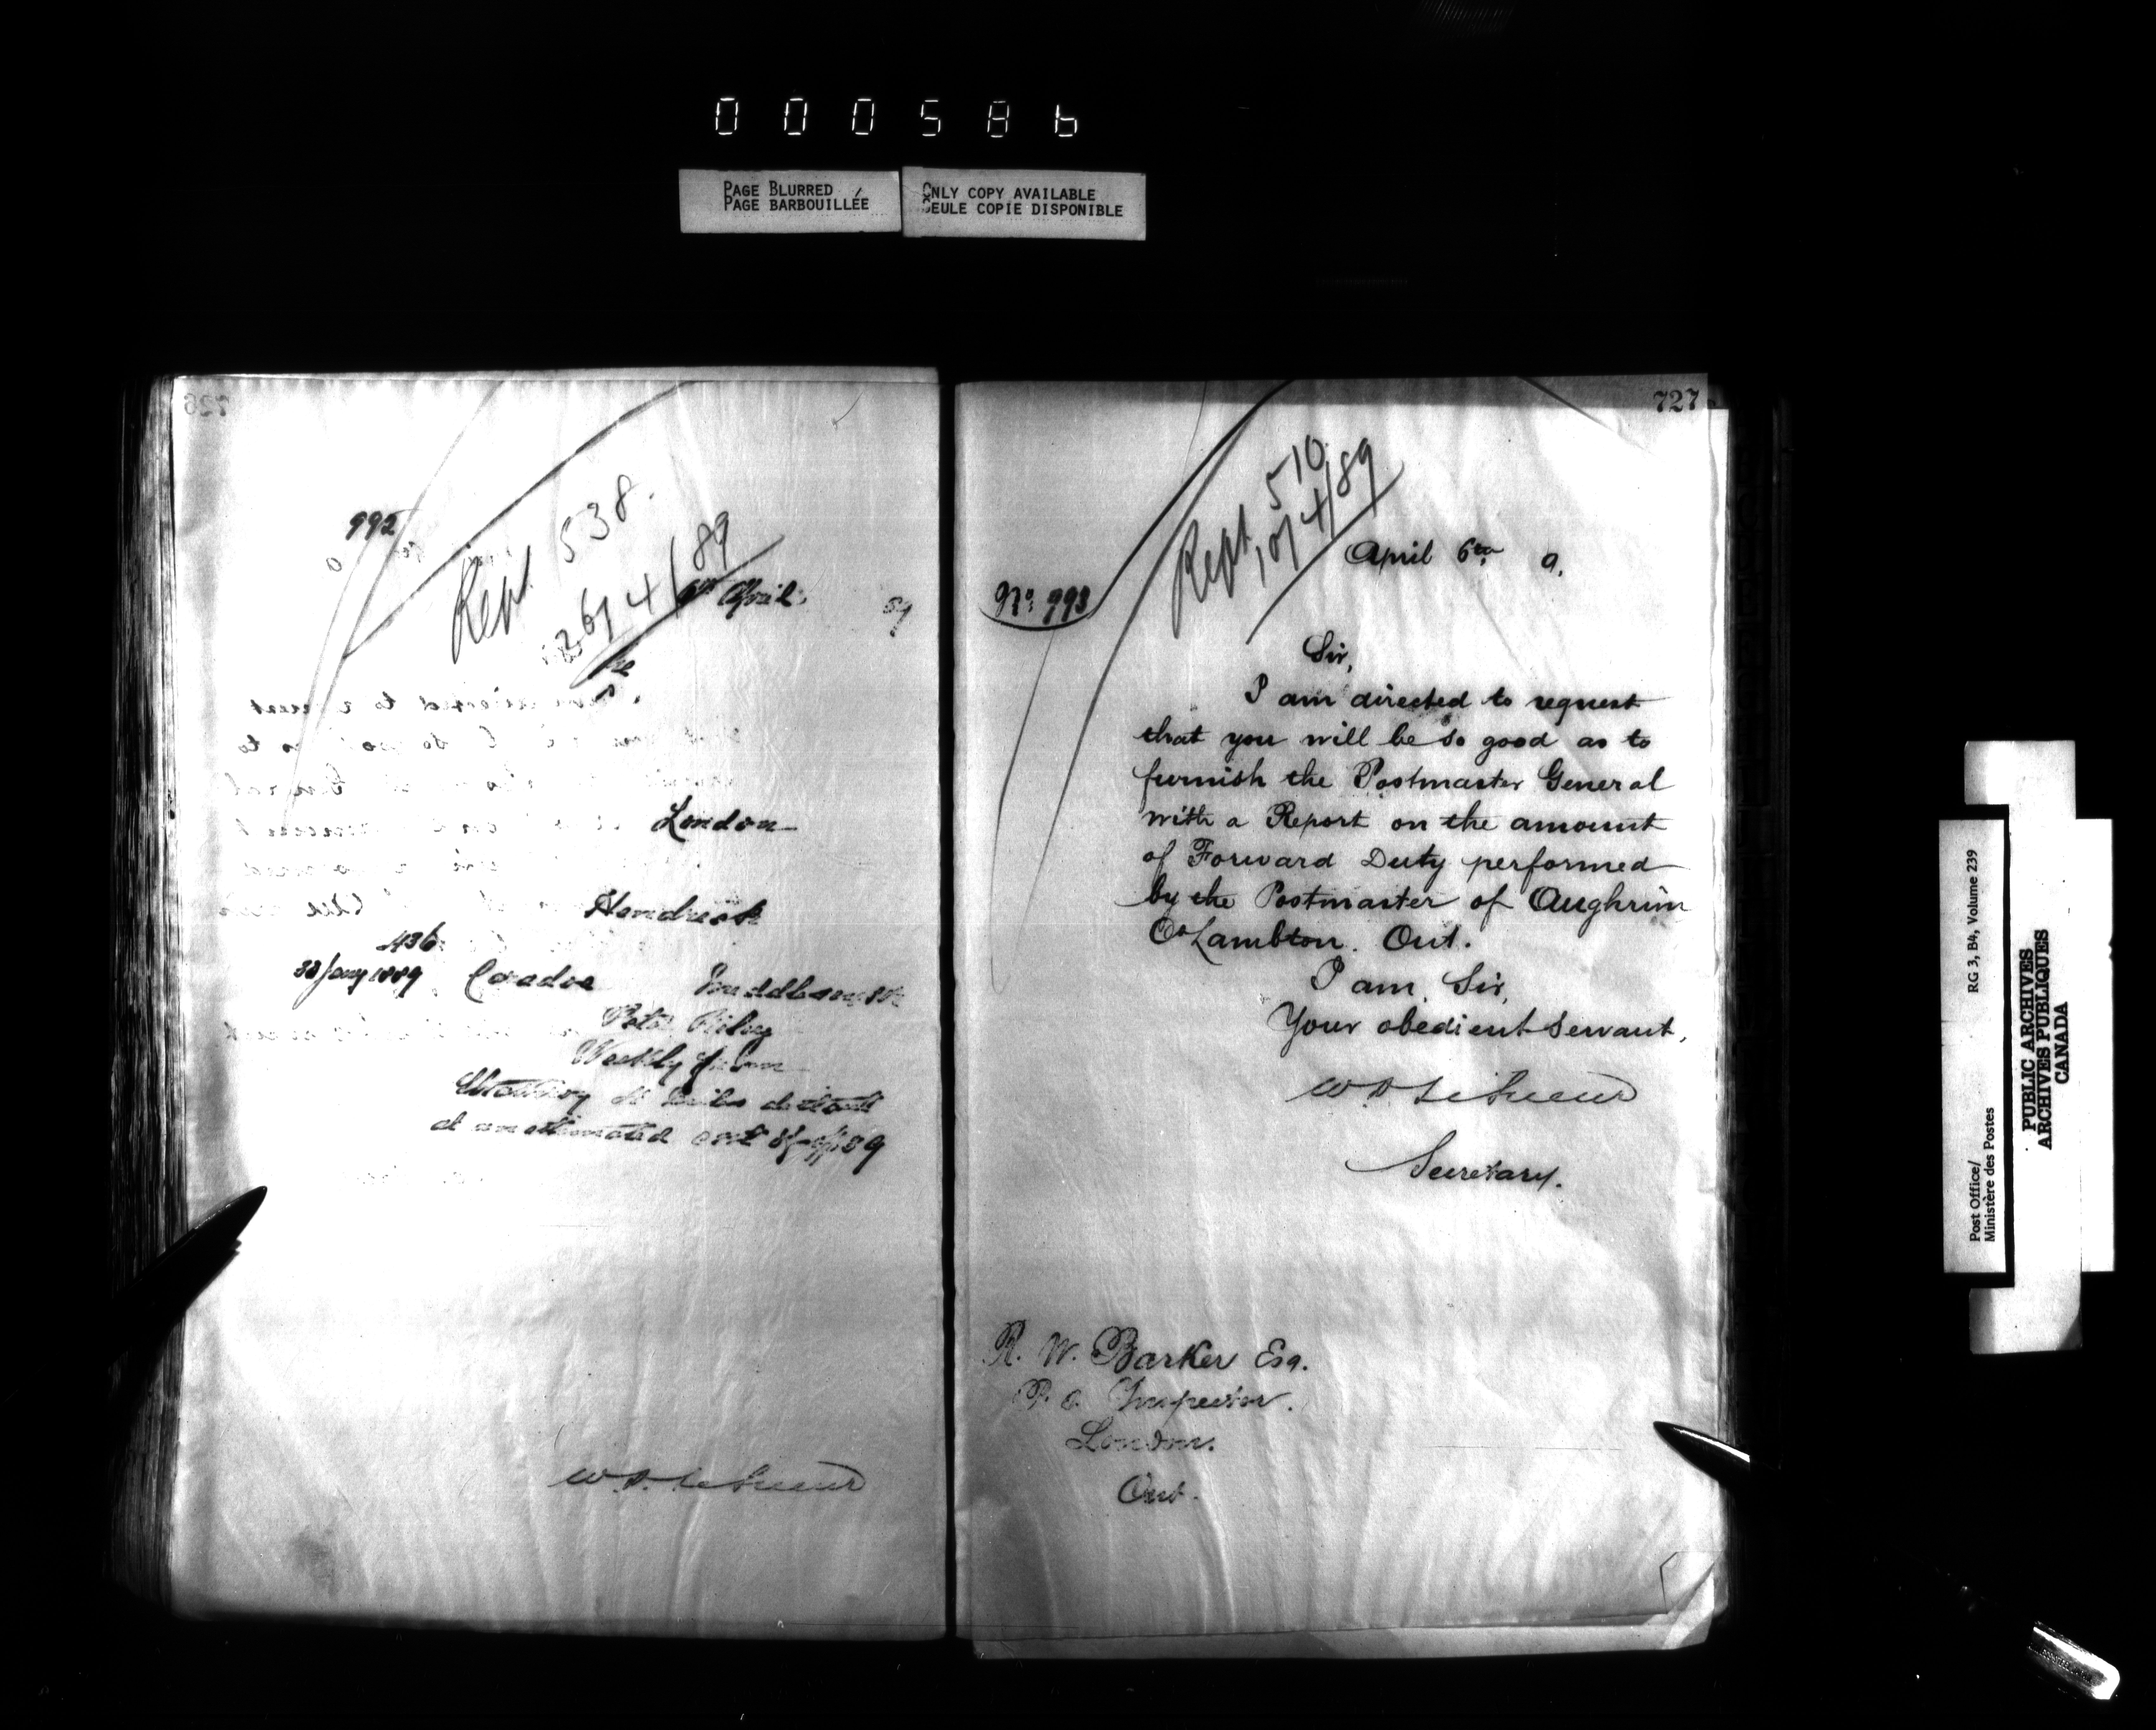 000586
PAGE BLURRED
PAGE BARBOUILLÉE
ONLY COPY AVAILABLE
SEULE COPIE DISPONIBLE
726
992
Rept. 538.
26/4/89
6th April, 89
London
436
23 Jany 1889 Caradoc Middlesex
Peter
Weekly
Strathroy miles distant
at an estimated cost
W D LeSueur
727
Rept. 510
10/4/89
April 6th 9.
No. 993
Sir,
I am directed to request
that you will be so good as to
furnish the Postmaster General
with a Report on the amount
of Forward Duty performed
by the Postmaster of Aughrim
Co Lambton. Ont.
I am, Sir,
Your obedient servant,
W D LeSueur
Secretary.
R. W. Barker Esq.
P. O. Inspector.
London.
Ont.
Post Office/
Ministère des Postes
RG 3, B4, Volume 239
PUBLIC ARCHIVES
ARCHIVES PUBLIQUES
CANADA